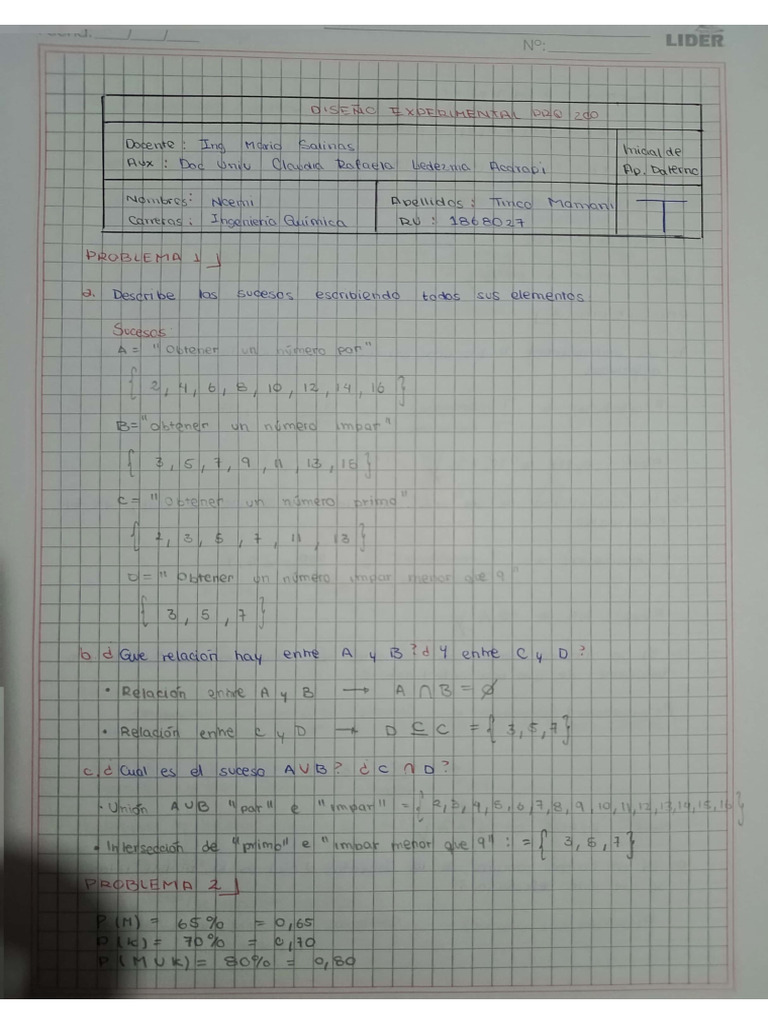 Nº: LIDER
DISEÑO EXPERIMENTAL PRQ 200
Docente: Ing Mario Salinas
Aux: Doc Univ Claudia Rafaela Ledezma
Inicial de
Ap. Paterno
Nombres: Noemi
Carreras: Ingenieria Química
Apellidos: Tinco Mamani
RU: 1868027
T
PROBLEMA 1
a. Describe los sucesos escribiendo todos sus elementos
Sucesos
A = "Obtener un número par"
{ 2, 4, 6, 8, 10, 12, 14, 16 }
B= "obtener un número impar"
{ 3, 5, 7, 9, 11, 13, 15 }
C = "Obtener un número primo"
{ 2, 3, 5, 7, 11, 13 }
D = "Obtener un número impar menor que 9"
{ 3, 5, 7 }
b ¿Que relación hay entre A y B? ¿Y entre C y D?
• Relación entre A y B → A ∩ B = ∅
• Relación entre C y D → D ⊆ C = { 3, 5, 7 }
c. ¿Cual es el suceso A∪B? ¿C ∩ D?
• Unión A∪B "par" e "impar" = { 2, 3, 4, 5, 6, 7, 8, 9, 10, 11, 12, 13, 14, 15, 16 }
• Intersección de "primo" e "imbar menor que 9" : = { 3, 5, 7 }
PROBLEMA 2
P(M) = 65% = 0,65
P(K) = 70% = 0,70
P(M∪K) = 80% = 0,80